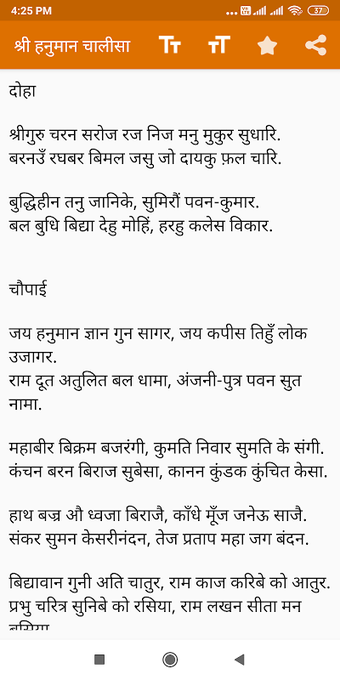 4:25 PM
37
श्री हनुमान चालीसा
दोहा
श्रीगुरु चरन सरोज रज निज मनु मुकुर सुधारि.
बरनउँ रघबर बिमल जसु जो दायकु फ़ल चारि.
बुद्धिहीन तनु जानिके, सुमिरौं पवन-कुमार.
बल बुधि बिद्या देहु मोहिं, हरहु कलेस विकार.
चौपाई
जय हनुमान ज्ञान गुन सागर, जय कपीस तिहुँ लोक
उजागर.
राम दूत अतुलित बल धामा, अंजनी-पुत्र पवन सुत
नामा.
महाबीर बिक्रम बजरंगी, कुमति निवार सुमति के संगी.
कंचन बरन बिराज सुबेसा, कानन कुंडक कुंचित केसा.
हाथ बज्र औ ध्वजा बिराजै, काँधे मूँज जनेऊ साजै.
संकर सुमन केसरीनंदन, तेज प्रताप महा जग बंदन.
बिद्यावान गुनी अति चातुर, राम काज करिबे को आतुर.
प्रभु चरित्र सुनिबे को रसिया, राम लखन सीता मन